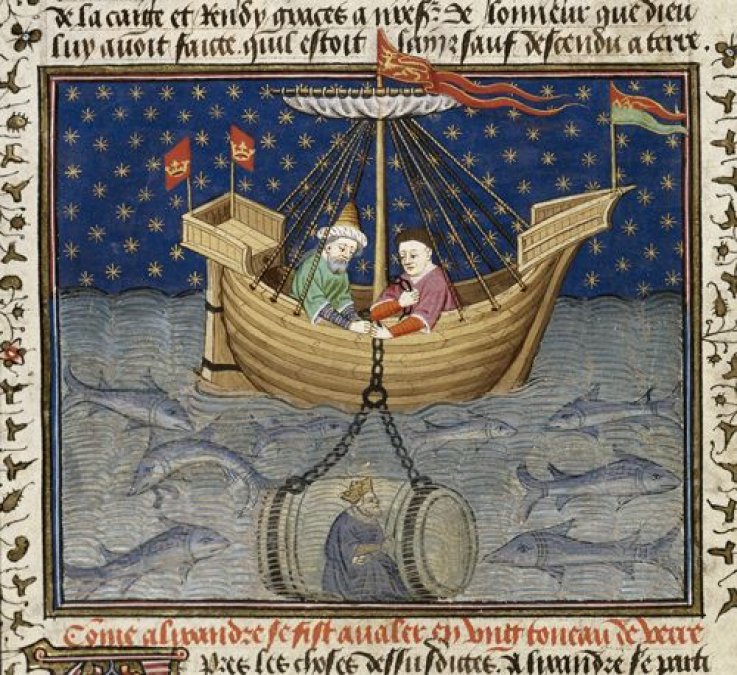 de la caige et Rendy graces a nre sr. de lonneur que dieu
luy auoit faicte. quil estoit sain & sauf descendu a terre.
Cõme alixandre se fist aualer en vng toneau de verre
pres les choses dessusdictes. Alixandre se parti